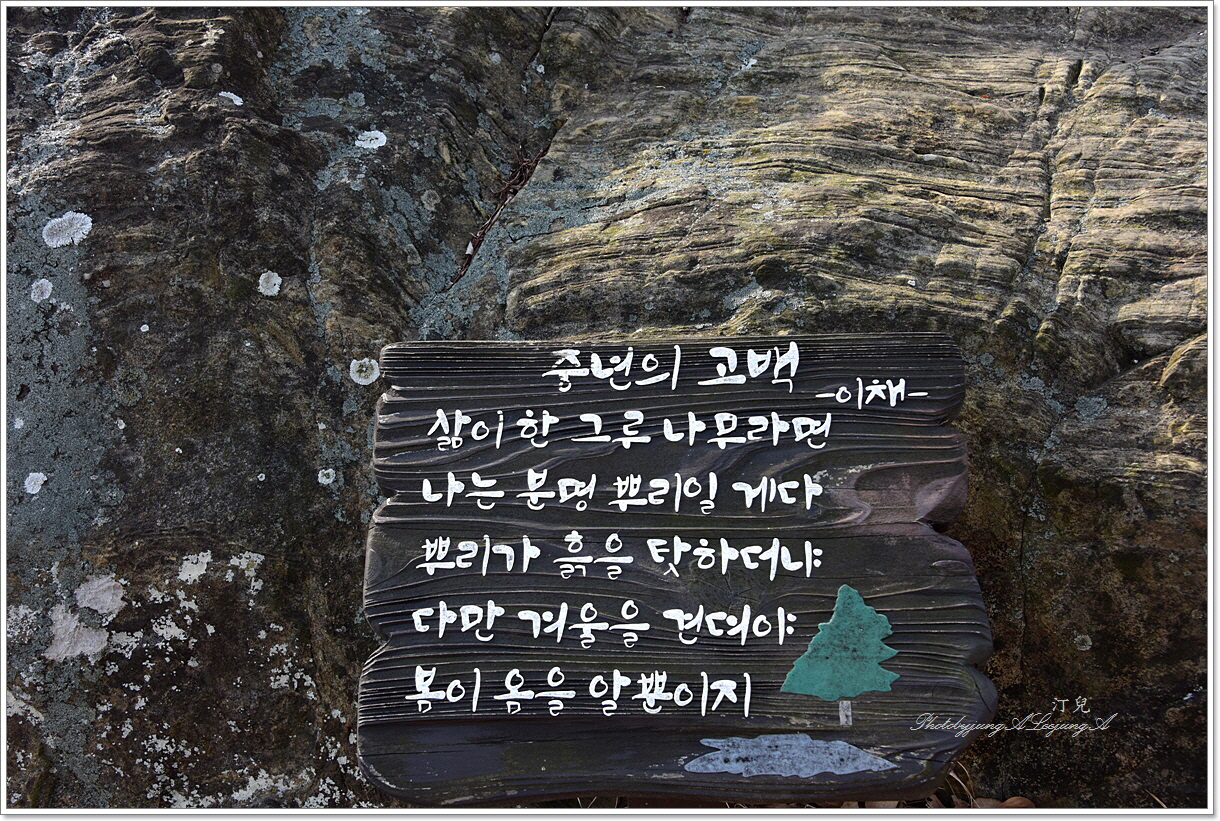 중년의 고백
-이채-
삶이 한 그루 나무라면
나는 분명 뿌리일 게다
뿌리가 흙을 탓하더냐
다만 겨울을 견뎌야
봄이 옴을 알뿐이지
汀兒
PhotobyjungALeejungA